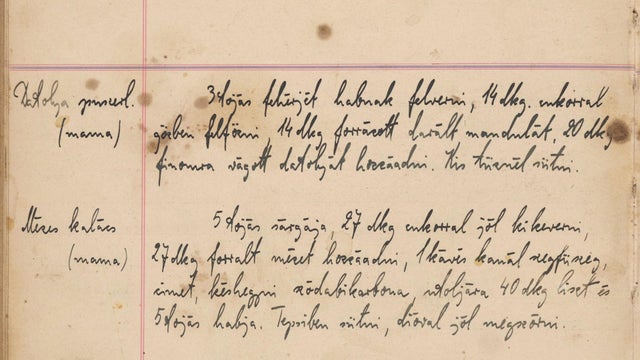 Datolya puszerl. 3 tojás fehérjét habnak felverni, 14 dkg. cukorral
(mama) gőzben felfőzni 14 dkg forrázott darált mandulát, 20 dkg
finomra vágott datolyát hozzáadni. Kis tűznél sütni.
Mézes kalács 5 tojás sárgája, 27 dkg cukorral jól kikeverni,
(mama) 27 dkg forralt mézet hozzáadni, 1 kávés kanál szegfűszeg,
cimet, késhegyni szódabikarbona, utoljára 40 dkg liszt és
5 tojás habja. Tepsiben sütni, dióval jól megszórni.